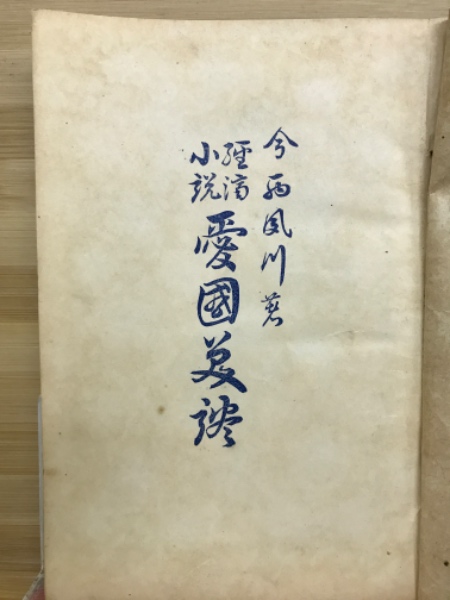 今西風川著
經濟
小説
愛國美談